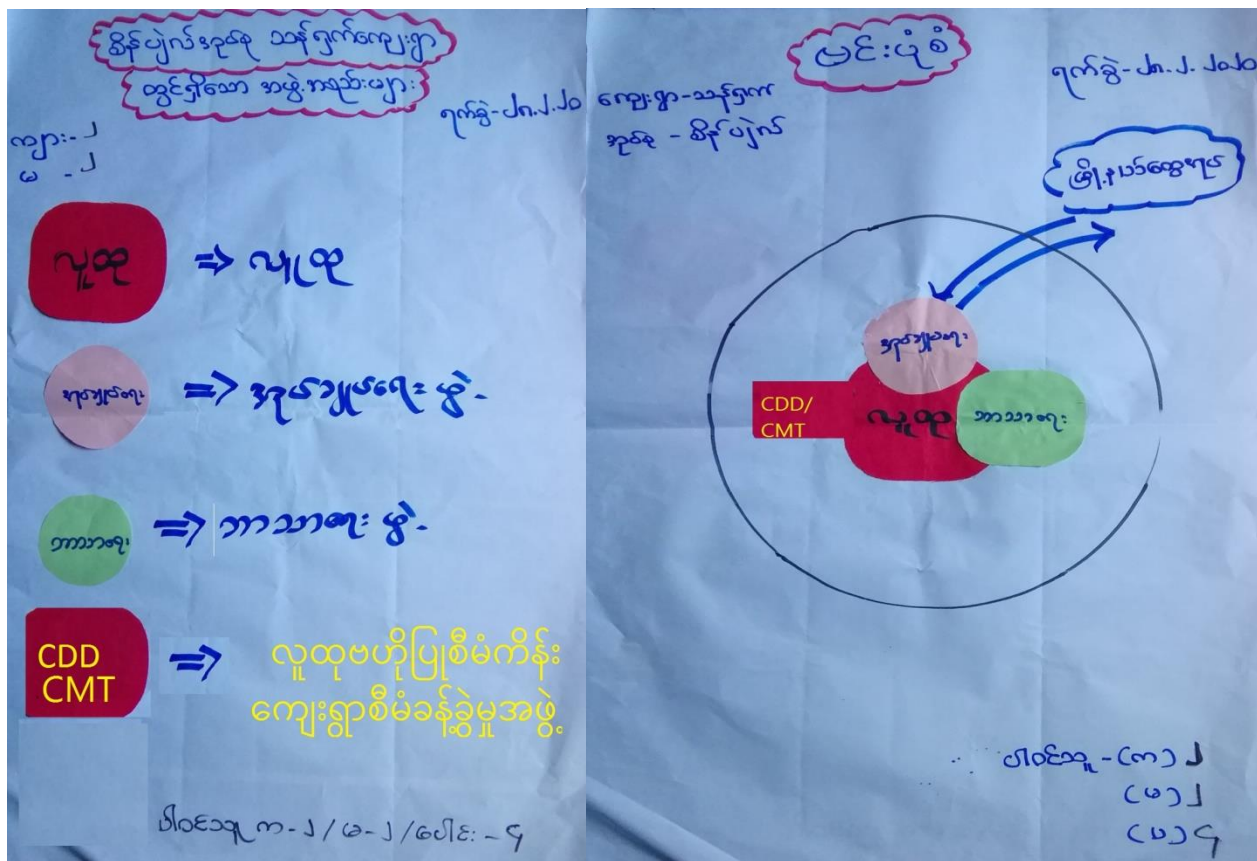 စိန်ပျဲလ်အုပ်စု သန်ရှက်ကျေးရွာ
တွင်ရှိသော အဖွဲ့အစည်းများ
ရက်စွဲ-၂၈.၂.၂၀
ကျား-၂
မ -၂
လူထု => လူထု
အုပ်ချုပ်ရေး => အုပ်ချုပ်ရေး ဖွဲ့.
ဘာသာရေး => ဘာသာရေး ဖွဲ့.
CDD
CMT =>
လူထုဗဟိုပြုစီမံကိန်း
ကျေးရွာစီမံခန့်ခွဲမှုအဖွဲ့
ပါဝင်သူ က-၂/မ-၂/ပေါင်း-၄
ဗြင်းပုံစံ
ရက်စွဲ-၂၈.၂.၂၀၂၀
ကျေးရွာ-သန်ရှက်
အုပ်စု - စိန်ပျဲလ်
အုပ်ချုပ်ရေး
CDD/
CMT
လူထု
ဘာသာရေး
ပါဝင်သူ -(က)၂
(မ)၂
(ပ)၄